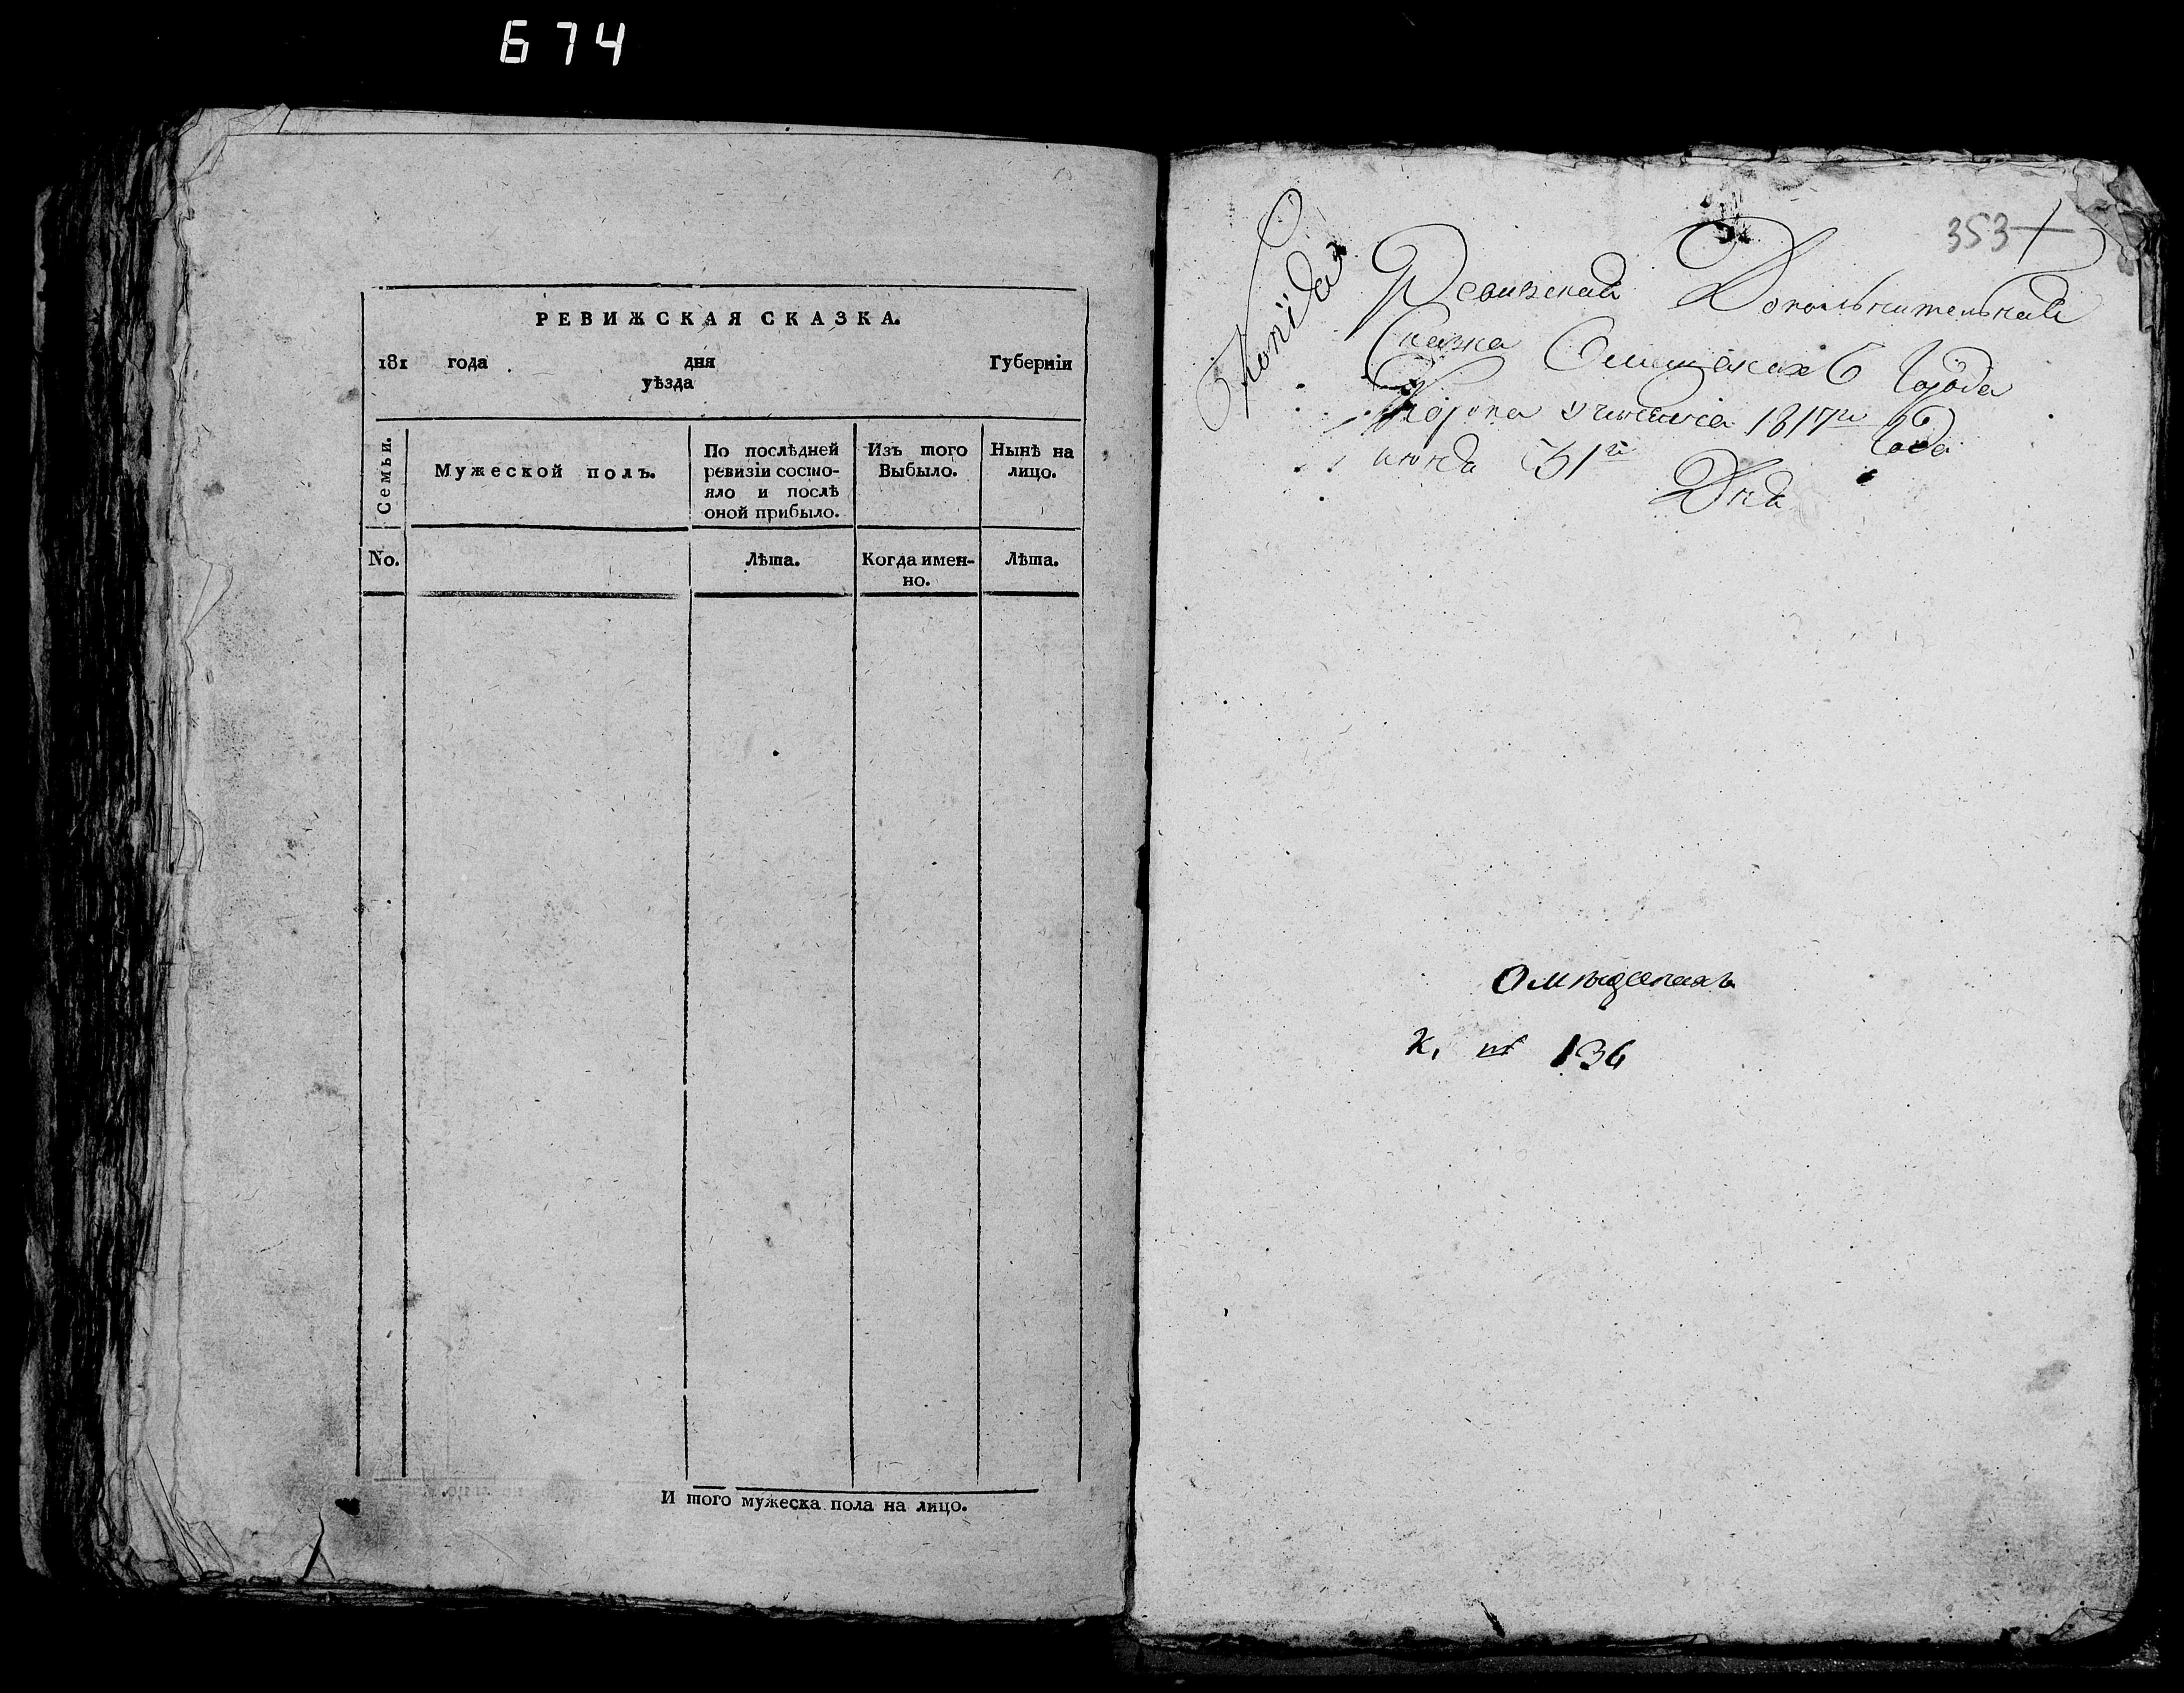 674
РЕВИЖСКАЯ СКАЗКА.
181 года дня Губерніи
уѣзда
Семьи.
Мужеской полъ.
По послѣдней ревизіи состояло и послѣ оной прибыло.
Изъ того Выбыло.
Нынѣ на лицо.
No.
Лѣта.
Когда именно.
Лѣта.
И того мужеска пола на лицо.
353
Копїя
Ревизская Дополнительная
Сказка Омещанах Города
Коропа 1817го Года
июля 31го
Дня
Омѣщанахъ
к. № 136